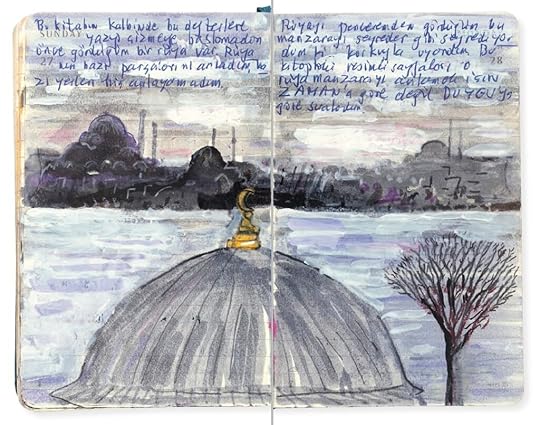 Bu kitabın kalbinde bu defterlere
SUNDAY
yazıp çizmeye başlamadan
önce gördüğüm bir rüya var. Rüya
27
nın bazı parçalarını anladım ba
zı yerleri hiç anlayamadım.
Rüyayı penceremden gördüğüm bu
manzarayı seyreder gibi seyrediyor
dum ki korkuyla uyandım. Bu
28
kitaptaki resimli sayfaları o
rüya manzarayı anlamak için
ZAMAN'a göre değil DUYGUya
göre sıraladım.